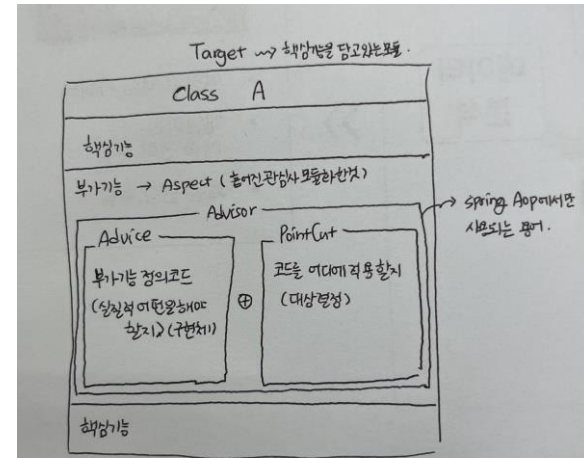 Target ⇝ 핵심기능을 담고있는모듈.
Class A
핵심기능
부가기능 → Aspect (흩어진관심사 모듈화한것)
Advisor
Advice
부가기능 정의코드
(실질적 어떤일을해야
할지) (구현체)
⊕
PointCut
코드를 어디에 적용할지
(대상결정)
→ spring Aop에서만
사용되는 용어.
핵심기능